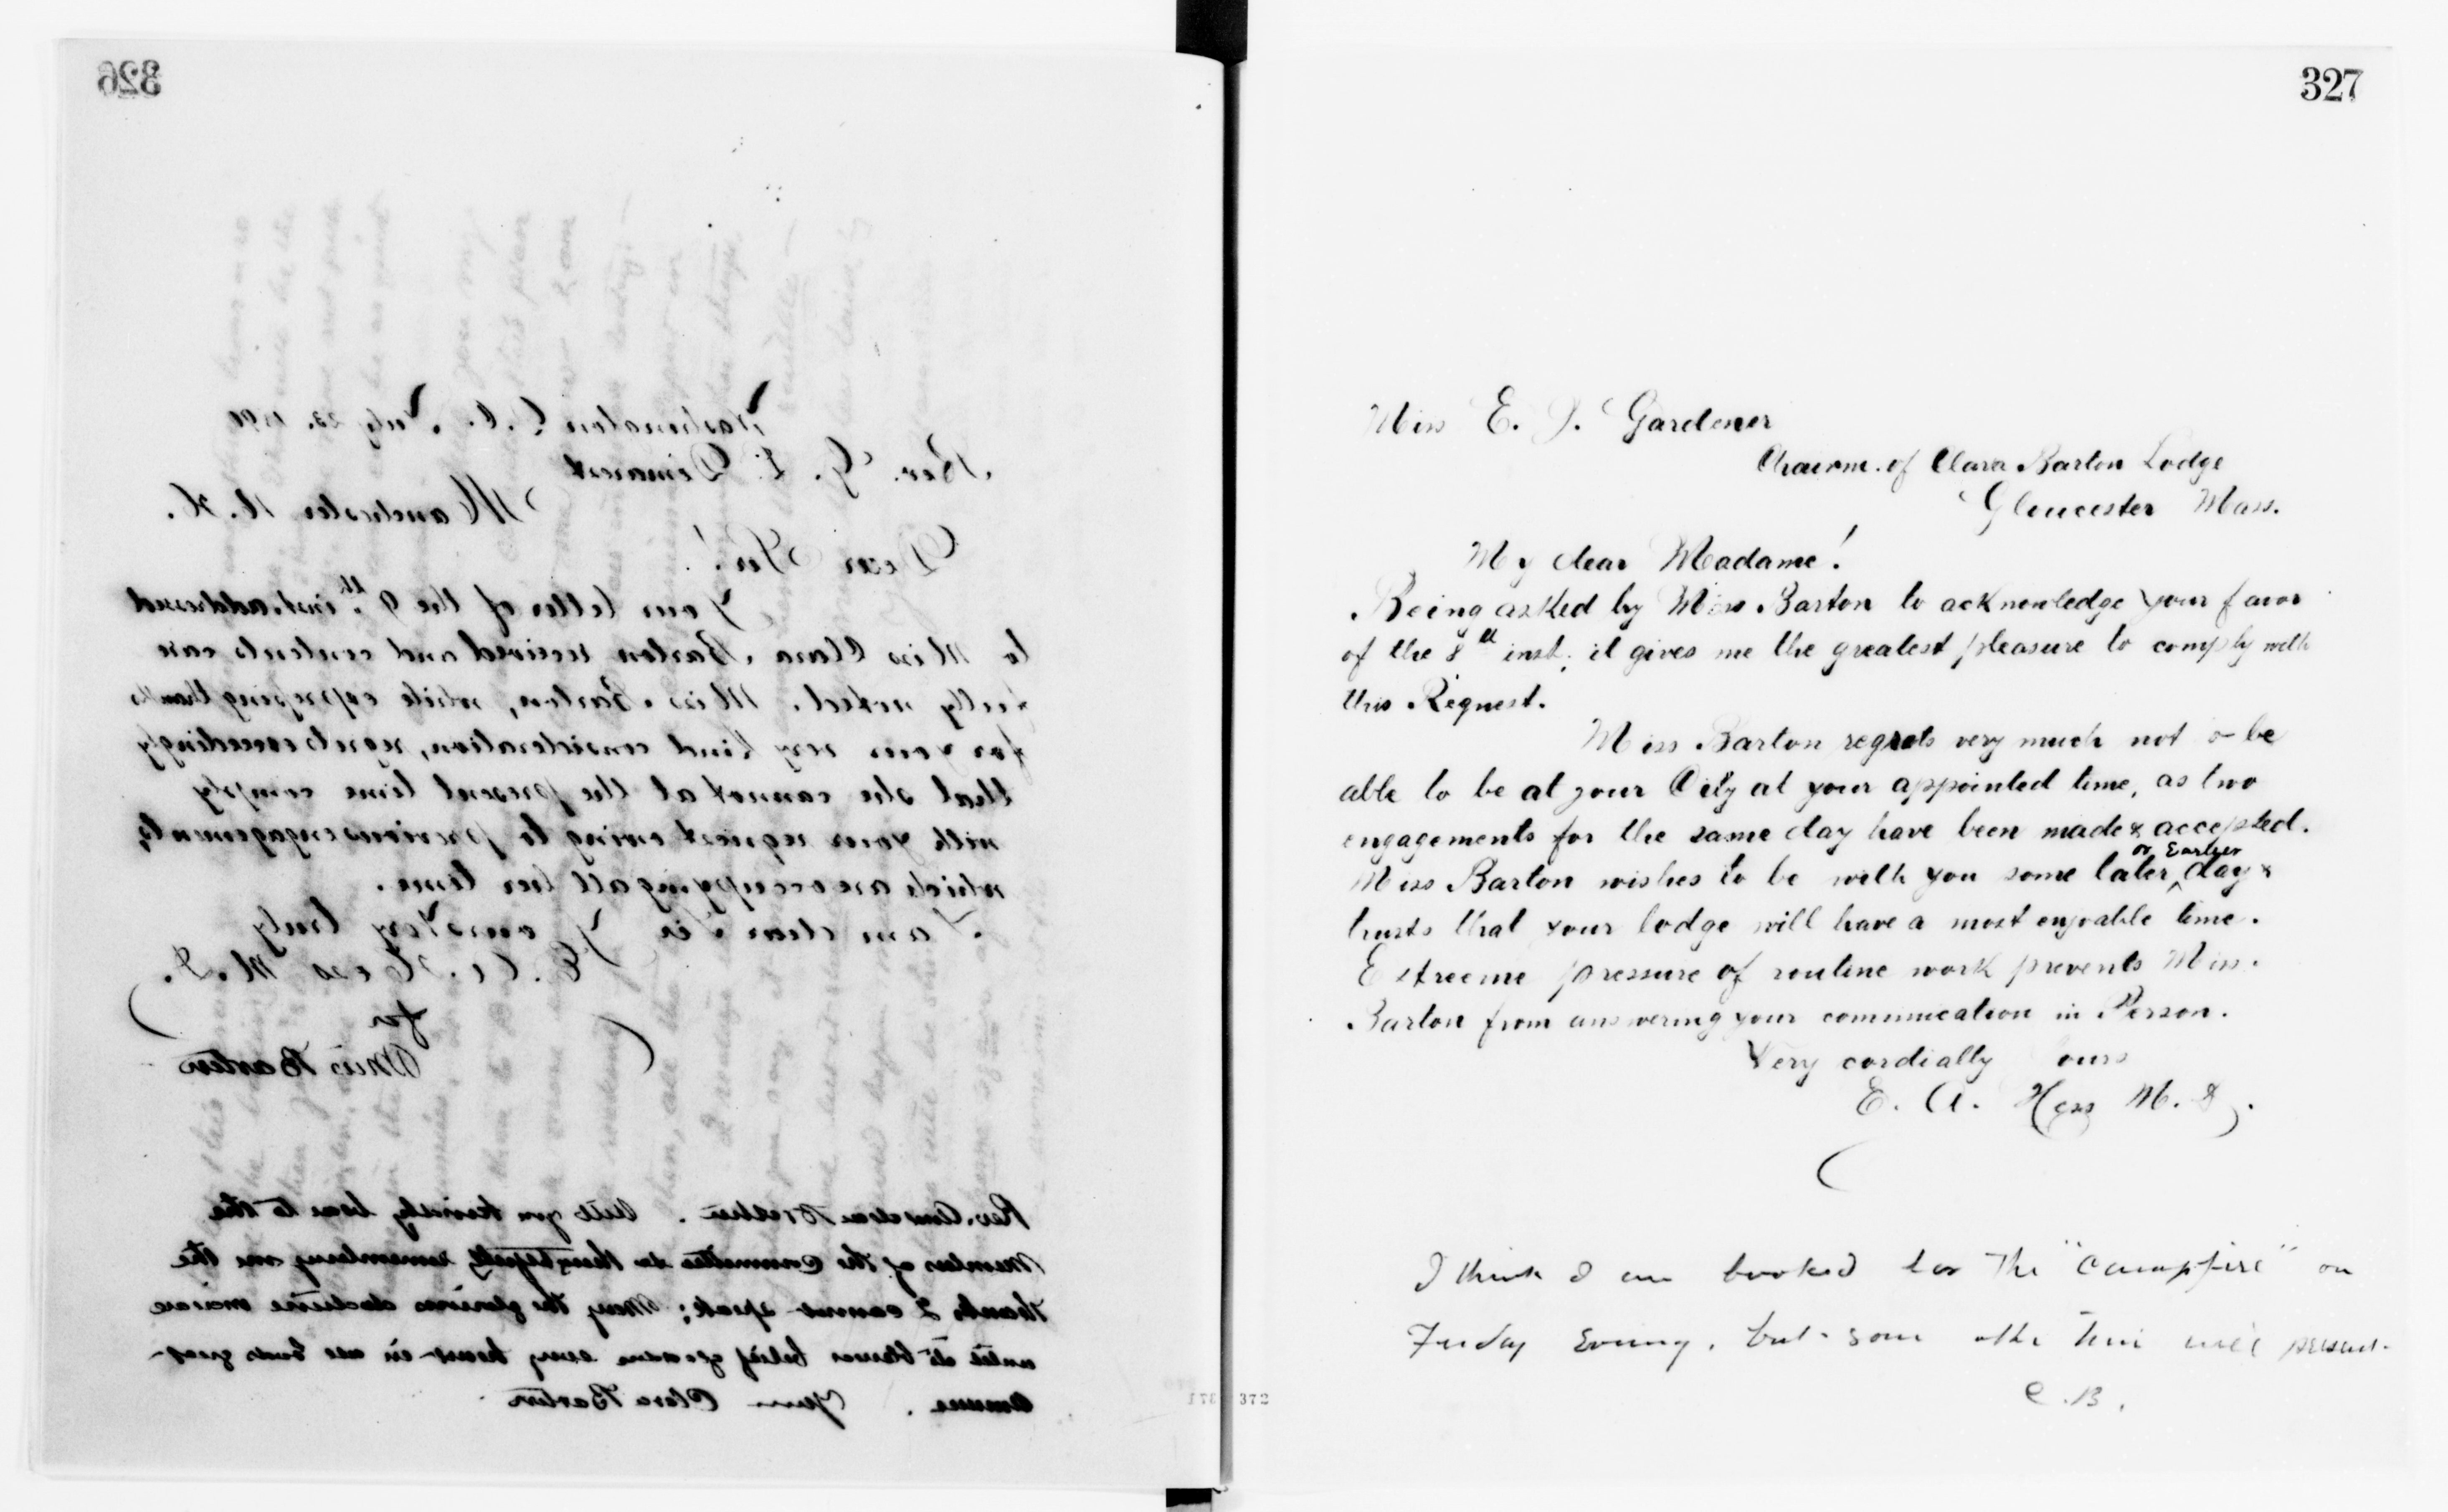 326
Washington D.C. July 23. 1890
Rev. G. L. Demarest
Manchester N. H.
Dear Sir!
Your letter of the 9th inst. addressed
to Miss Clara Barton received and contents care
fully noted. Miss Barton, while expressing thanks
for your very kind consideration, regrets exceedingly
that she cannot at the present time comply
with your request owing to previous engagements,
which are occupying all her time.
I am dear Sir Yours Very truly
E. A. Hess M.D.
for
Miss Barton
Rev. and dear Brother. Will you kindly bear to the
Members of the Committee so thoughtfully remembering me the
thanks I cannot speak; May the glorious doctrine increase
until its blessed belief gladdens every heart in all lands
Yours Clara Barton
327
Miss E. J. Gardener
Chairm. of Clara Barton Lodge
Gloucester Mass.
My dear Madame!
Being asked by Miss Barton to acknowledge your favor
of the 8th inst; it gives me the greatest pleasure to comply with
this Request.
Miss Barton regrets very much not o be
able to be at your City at your appointed time, as two
engagements for the same day have been made & accepted.
Miss Barton wishes to be with you some later or Earlyer day &
trusts that your lodge will have a most enjoable time.
Extreeme pressure of routine work prevents Miss.
Barton from answering your communication in Person.
Very cordially Yours
E. A. Hess M. D.
I think I am booked for the "Campfire" on
Friday Evening, but some othe time will present.
C.B.
371 372